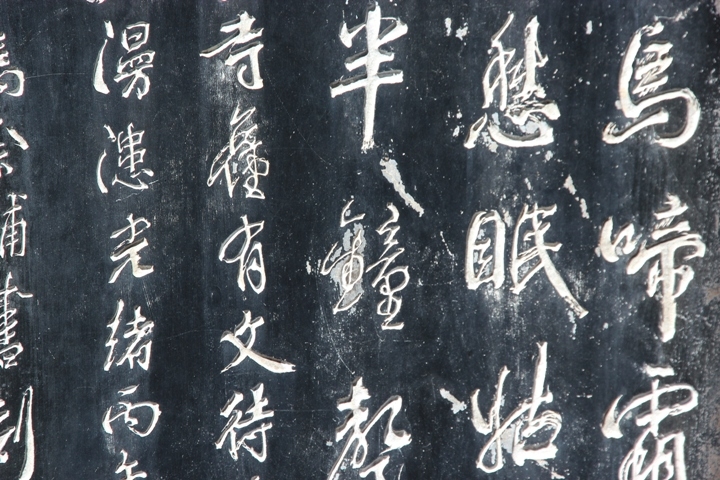 烏啼霜
愁眠姑
半鐘聲
寺舊有文待
漫漶光緒丙
余補書刻